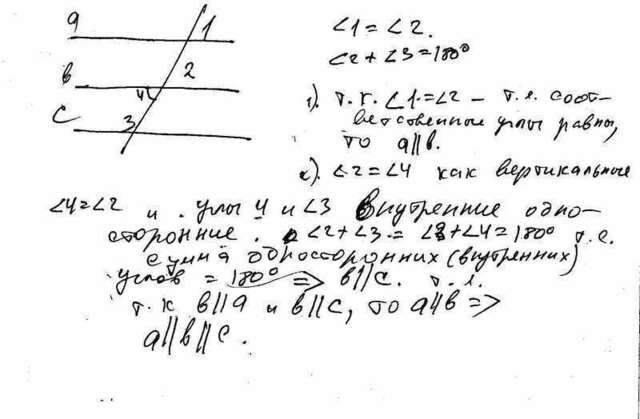 a
1
∠1 = ∠2.
∠2 + ∠3 = 180°
в
2
4
с
3
1). т.к. ∠1 = ∠2 – т.е. соот-
ветственные углы равны,
то a||в.
2). ∠2 = ∠4 как вертикальные
∠4 = ∠2 и. углы 4 и ∠3 внутренние одно-
сторонние. ∠2 + ∠3 = ∠3 + ∠4 = 180° т.е.
сумма односторонних (внутренних)
углов = 180° => в||с. т.е.
т.к в||a и в||с, то a||в =>
a||в||с.